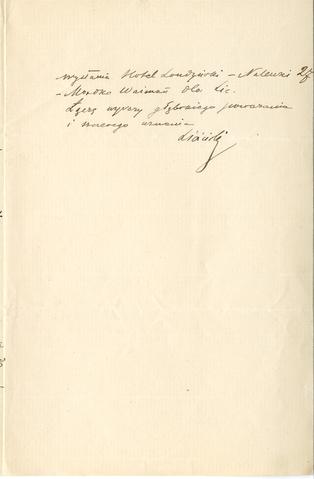 wysłania Hotel Londyński – Nalewki
– Moszko Wajman dla Lic.
Łączę wyrazy głębokiego poważania
i szczerego uznania